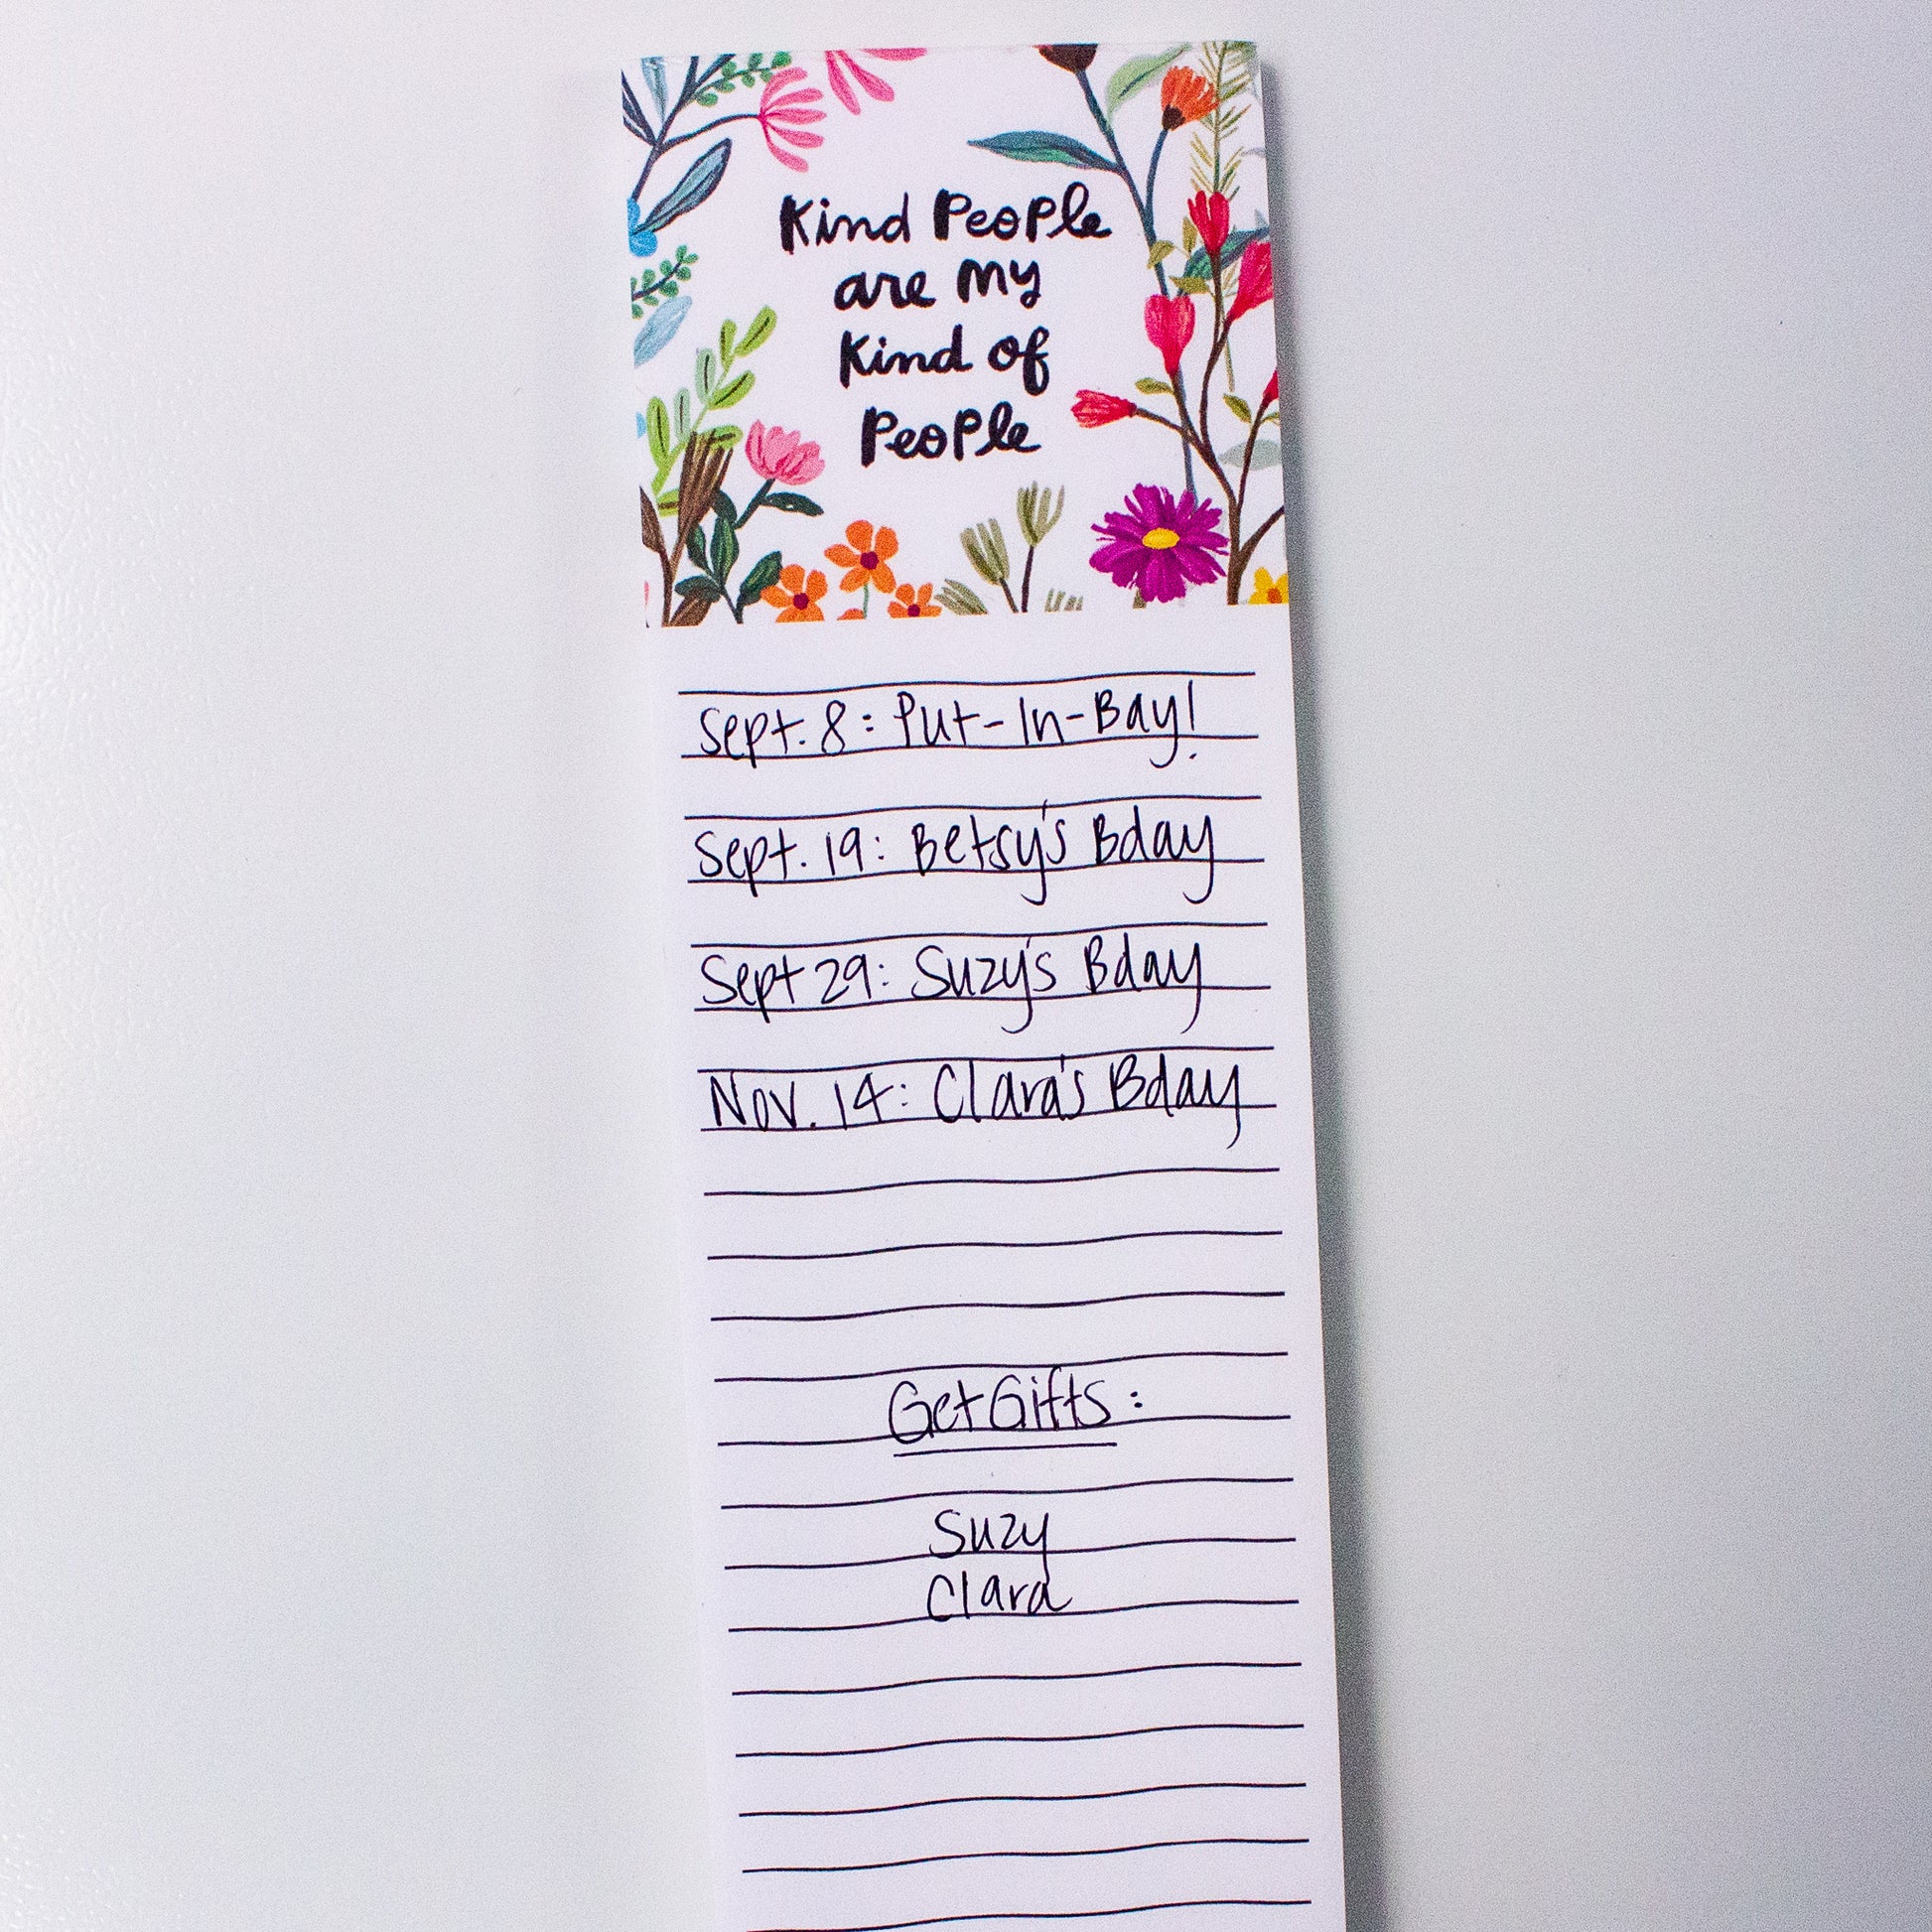 Kind People
are my
Kind of
People
Sept. 8: Put-In-Bay!
Sept. 19: Betsy's Bday
Sept 29: Suzy's Bday
Nov. 14: Clara's Bday
Get Gifts:
Suzy
Clara